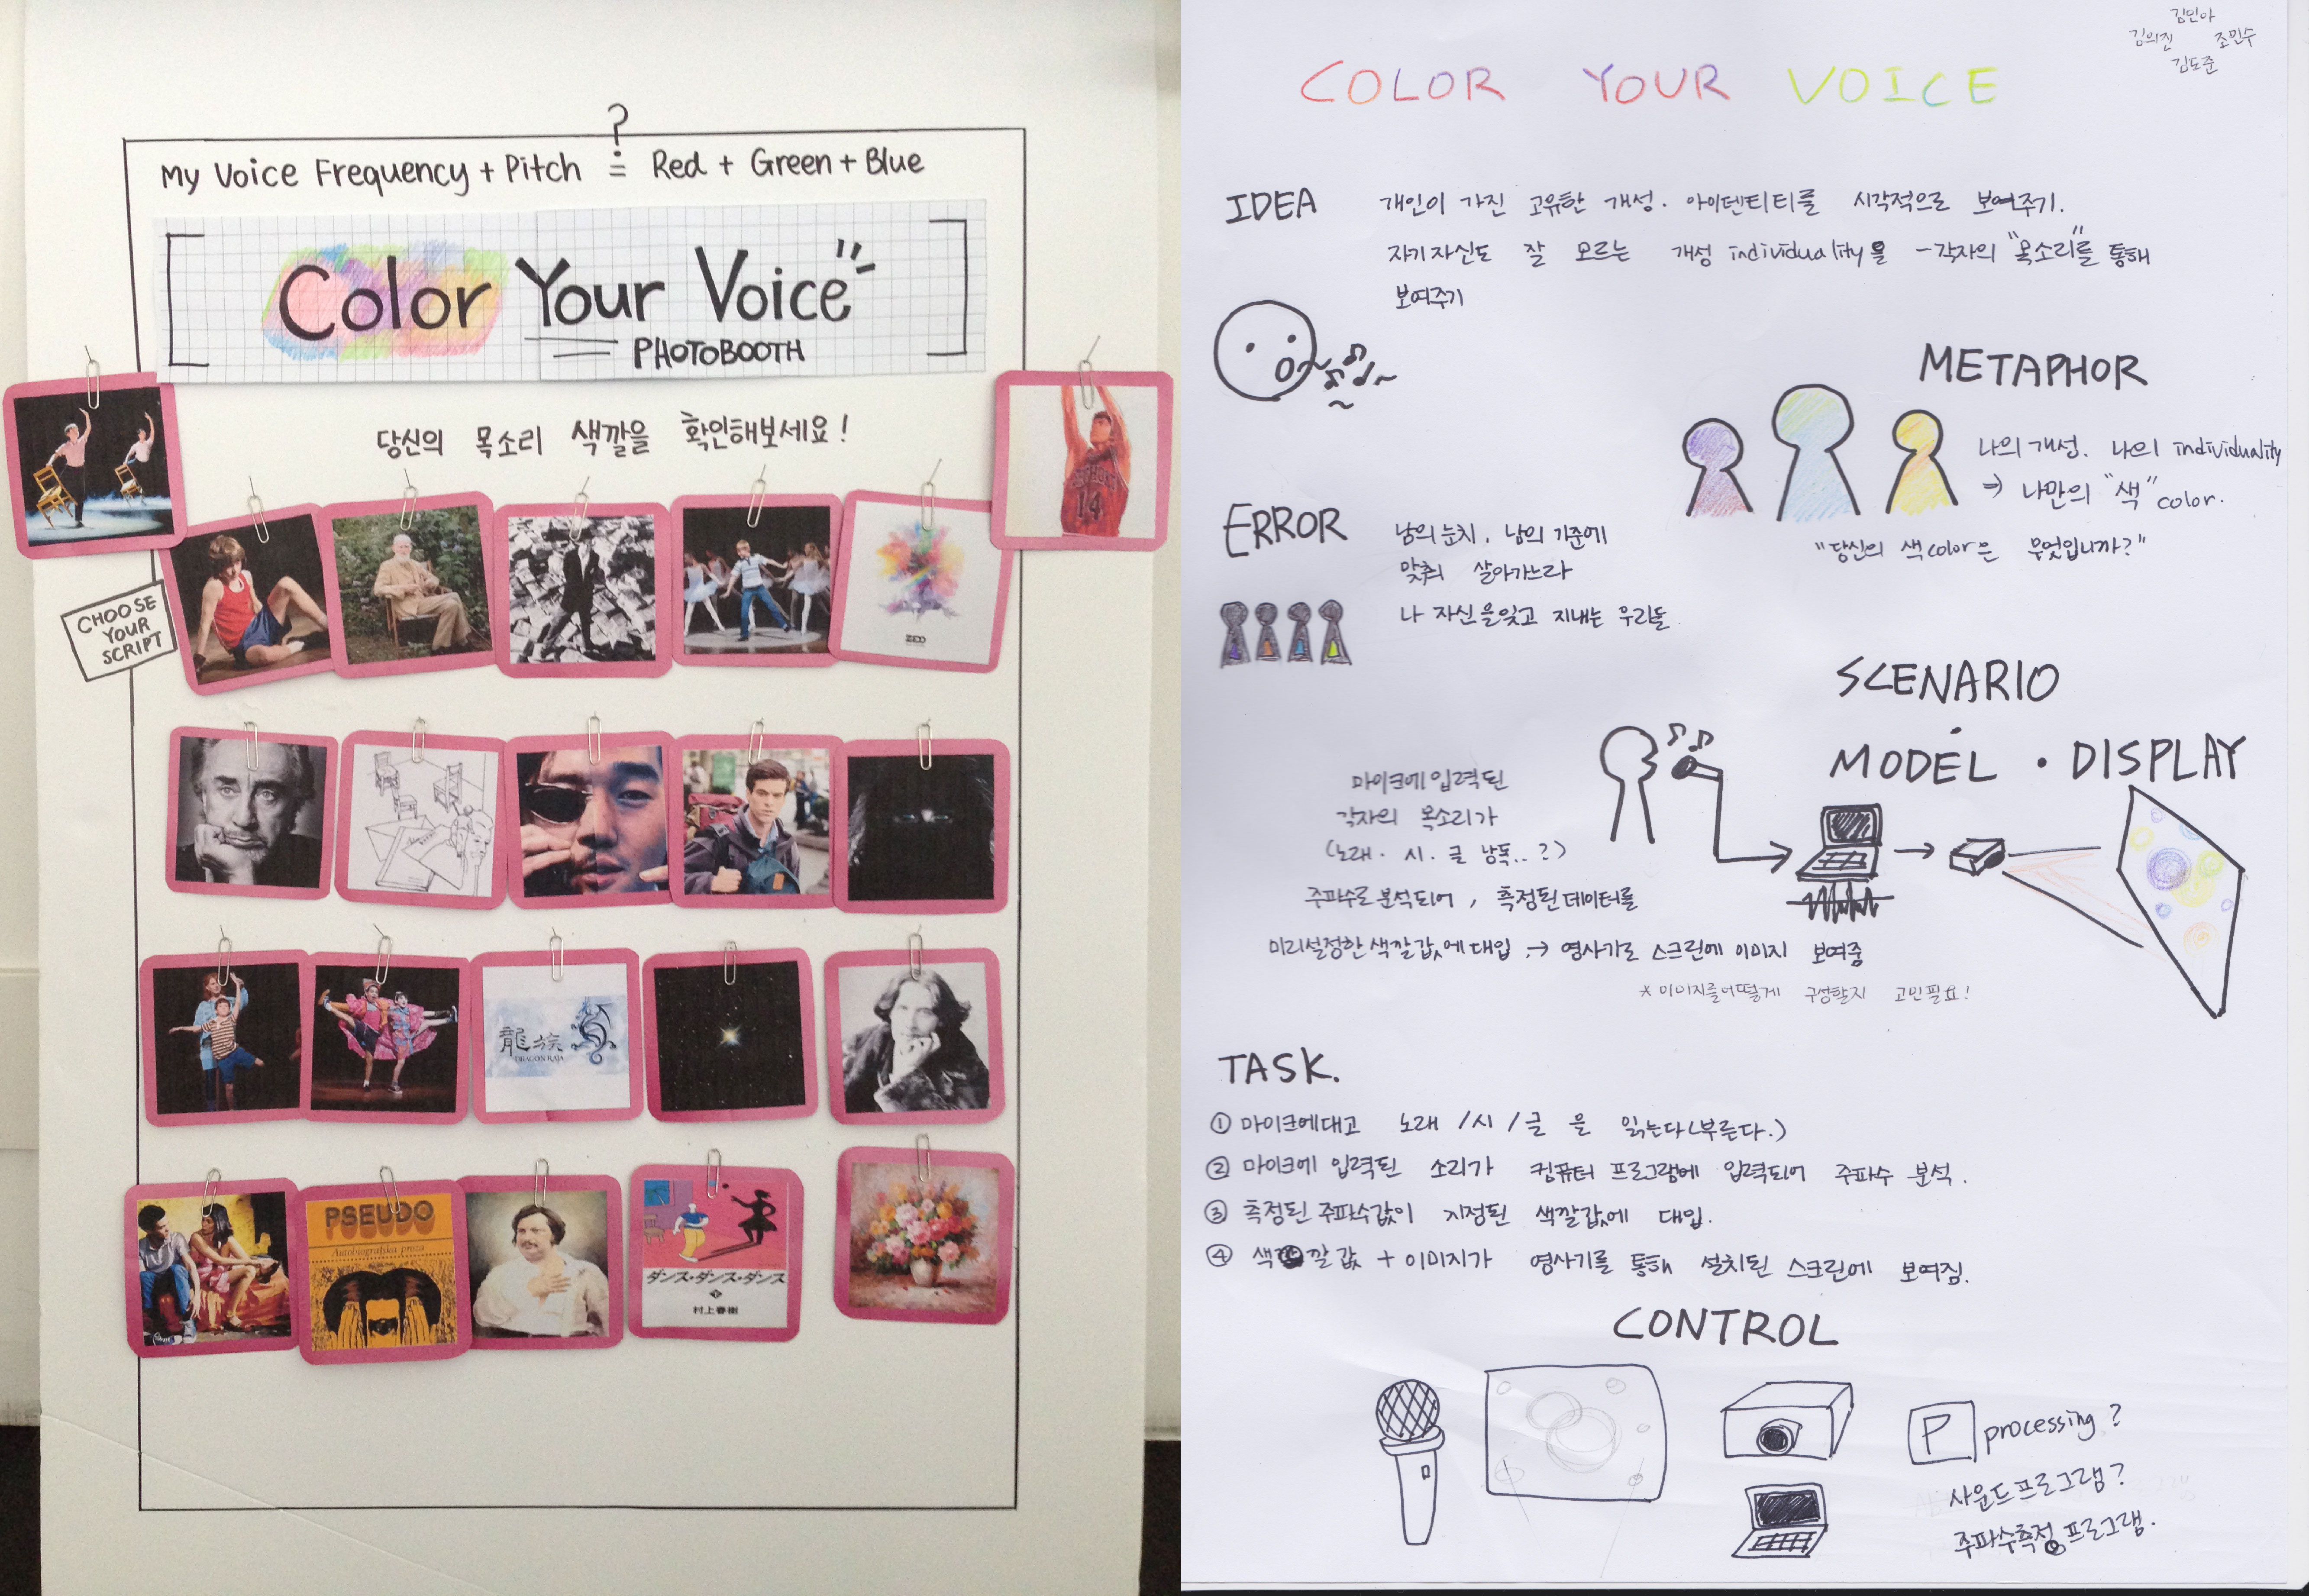 ?
My Voice Frequency + Pitch = Red + Green + Blue
[ Color Your Voice ]
PHOTOBOOTH
당신의 목소리 색깔을 확인해보세요!
14
CHOOSE
YOUR
SCRIPT
ZEDD
龍族
DRAGON RAJA
PSEUDO
Autobiografska proza
ダンス・ダンス・ダンス
下
村上春樹
김민아
김의진 조민수
김도준
COLOR YOUR VOICE
IDEA
개인이 가진 고유한 개성. 아이덴티티를 시각적으로 보여주기.
자기자신도 잘 모르는 개성 individuality을 - 각자의 "목소리"를 통해
보여주기
METAPHOR
나의 개성. 나의 individuality
⇒ 나만의 "색" color.
"당신의 색 color은 무엇입니까?"
ERROR
남의 눈치, 남의 기준에
맞춰 살아가느라
나 자신을 잊고 지내는 우리들
SCENARIO
MODEL · DISPLAY
마이크에 입력된
각자의 목소리가
(노래. 시. 글 낭독..?)
주파수로 분석되어, 측정된 데이터를
미리설정한 색깔값에 대입 → 영사기로 스크린에 이미지 보여줌
* 이미지를 어떻게 구성할지 고민필요!
TASK.
① 마이크에대고 노래 / 시 / 글 을 읽는다(부른다.)
② 마이크에 입력된 소리가 컴퓨터 프로그램에 입력되어 주파수 분석.
③ 측정된 주파수값이 지정된 색깔값에 대입.
④ 색깔값 + 이미지가 영사기를 통해 설치된 스크린에 보여짐.
CONTROL
P processing?
사운드프로그램?
주파수측정 프로그램.